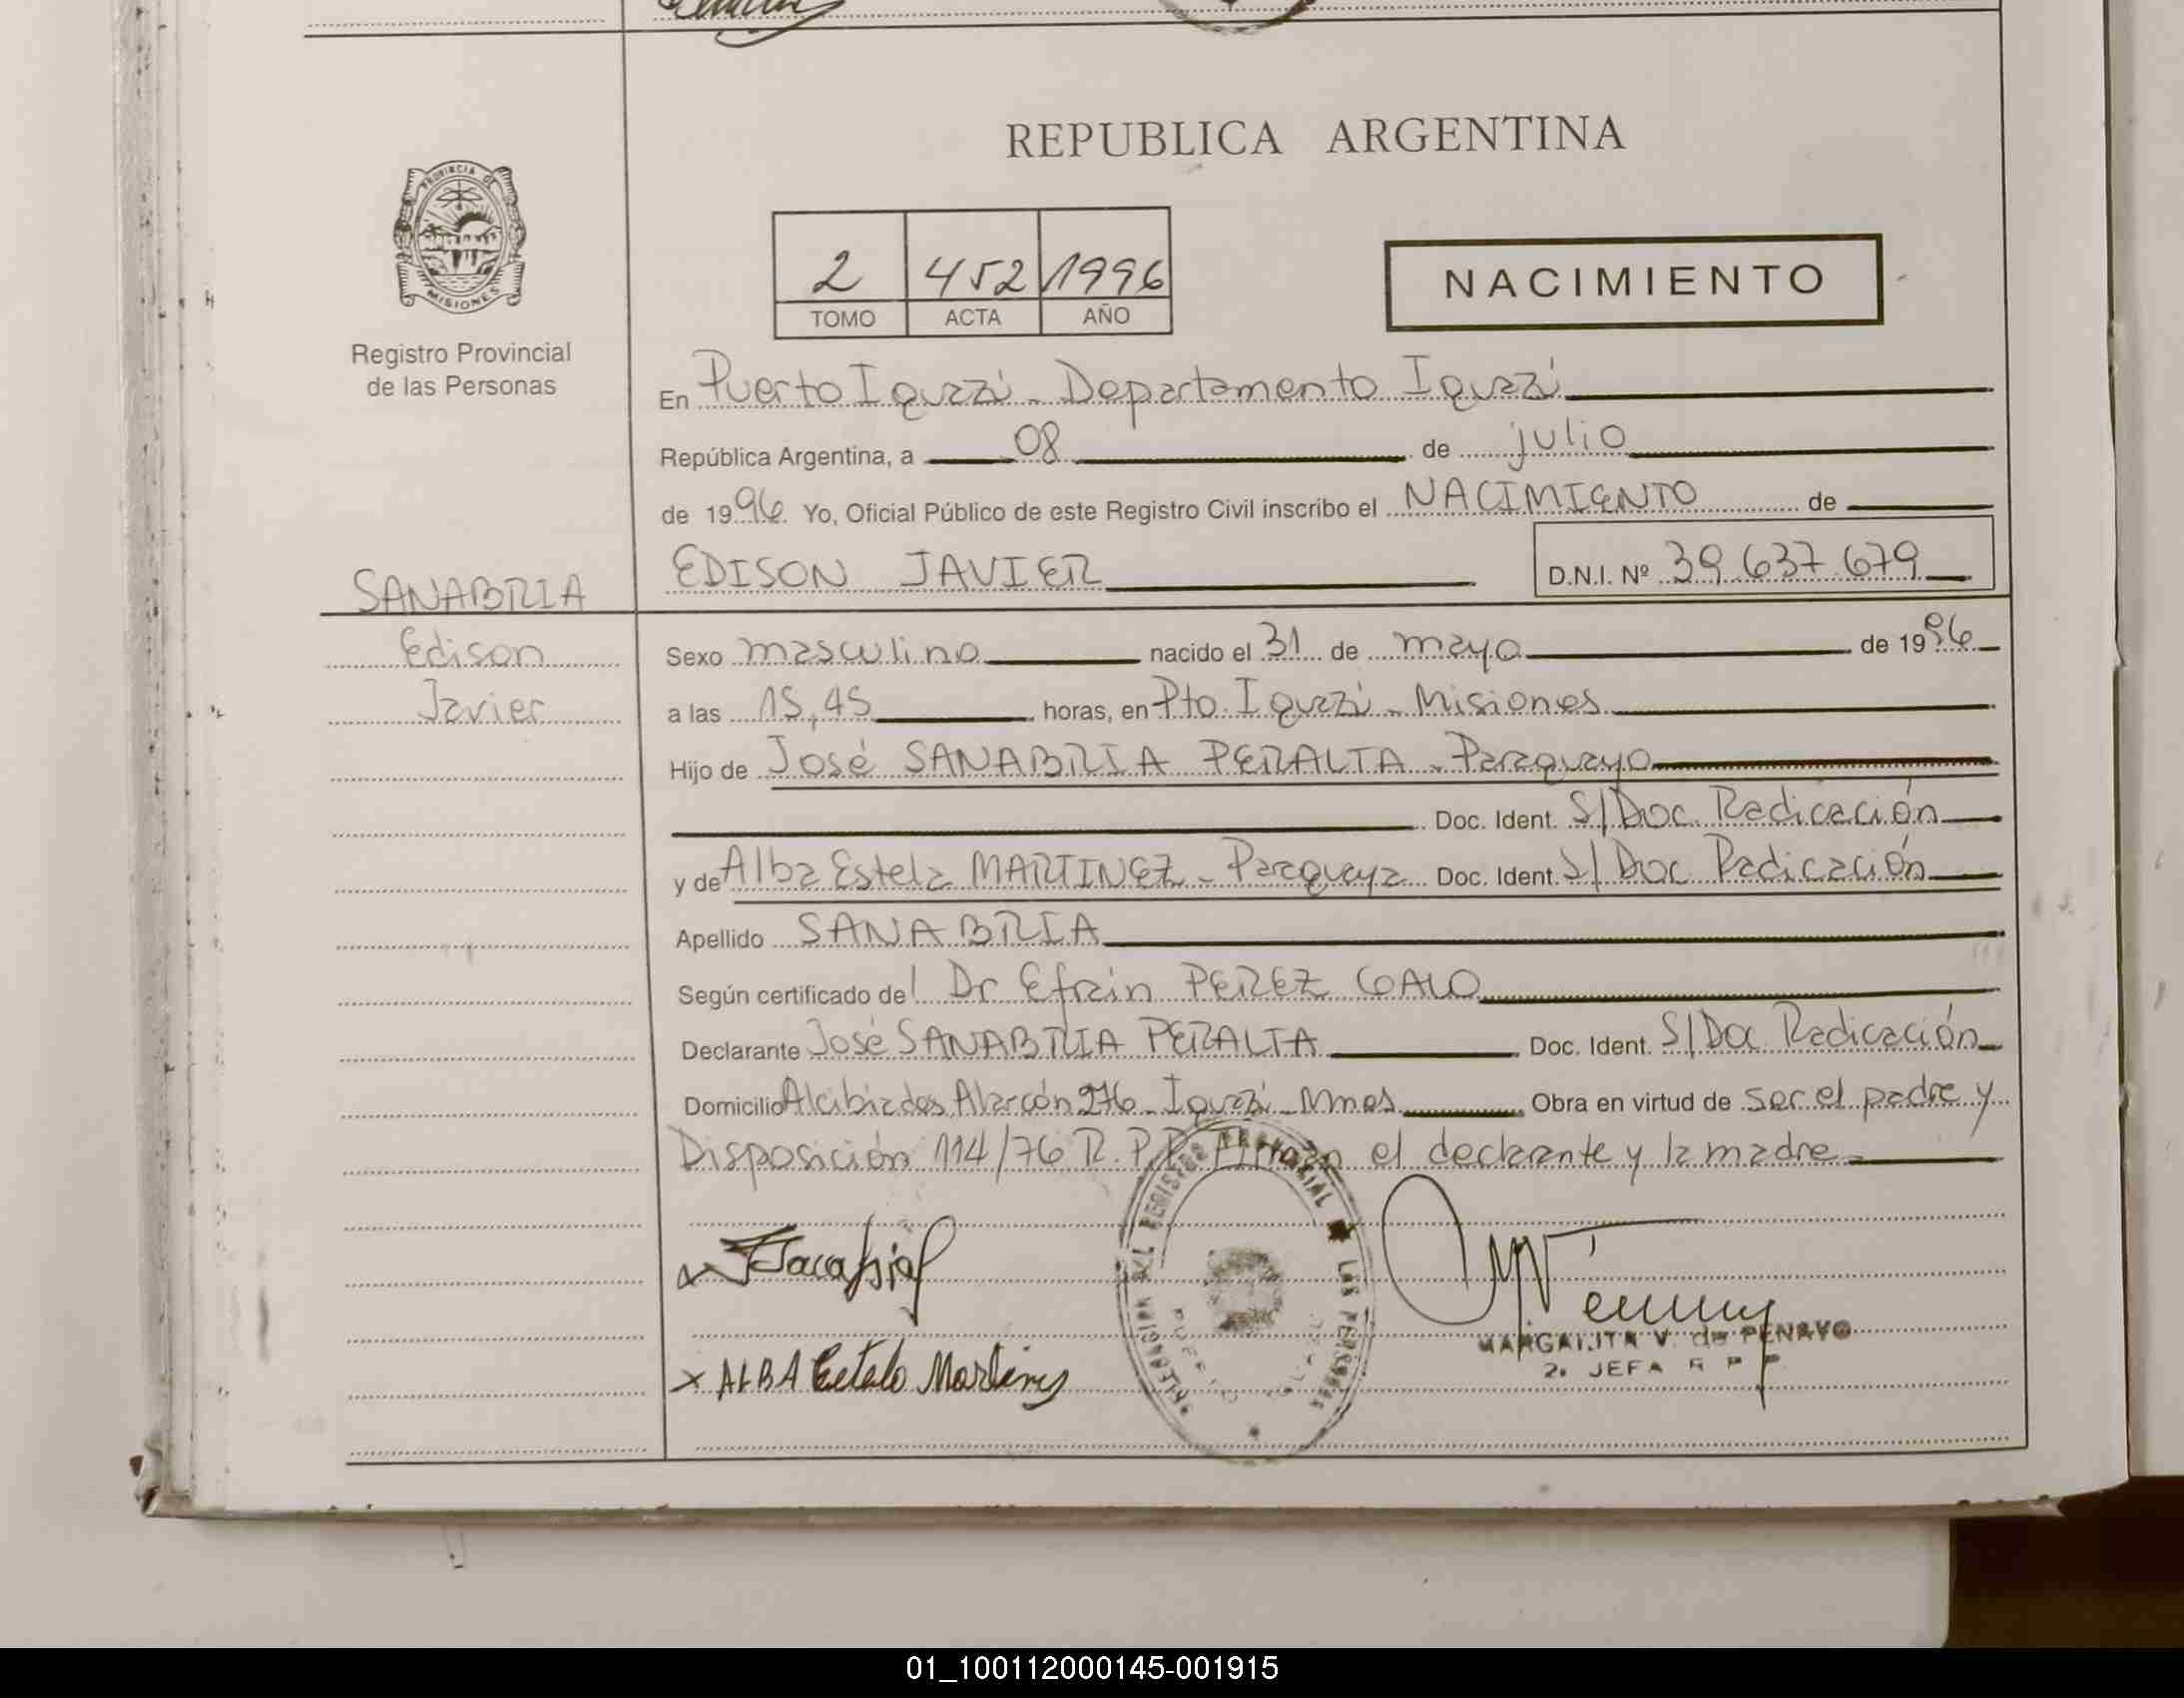 REPUBLICA ARGENTINA
PROVINCIA DE
MISIONES
Registro Provincial
de las Personas
2 452 1996
TOMO ACTA AÑO
NACIMIENTO
En Puerto Iguazú - Departamento Iguazú
República Argentina, a 08 de julio
de 1996 Yo, Oficial Público de este Registro Civil inscribo el NACIMIENTO de
EDISON JAVIER D.N.I. Nº 39.637.679
SANABRIA
Edison
Javier
Sexo masculino nacido el 31 de mayo de 1996
a las 15,45 horas, en Pto. Iguazú - Misiones
Hijo de José SANABRIA PERALTA - Paraguayo
Doc. Ident. S/Doc. Radicación
y de Alba Estela MARTINEZ - Paraguaya Doc. Ident. S/Doc Radicación
Apellido SANABRIA
Según certificado del Dr Efrain PEREZ GALO
Declarante José SANABRIA PERALTA Doc. Ident. S/Doc Radicación
Domicilio Alcibiades Alarcón 276 - Iguazú - Mnes Obra en virtud de ser el padre y
Disposición 114/76 R.P.P. Firman el declarante y la madre
x ALBA Estela Martinez
MARGARITA V. de PENAYO
2a JEFA R P P
01_100112000145-001915